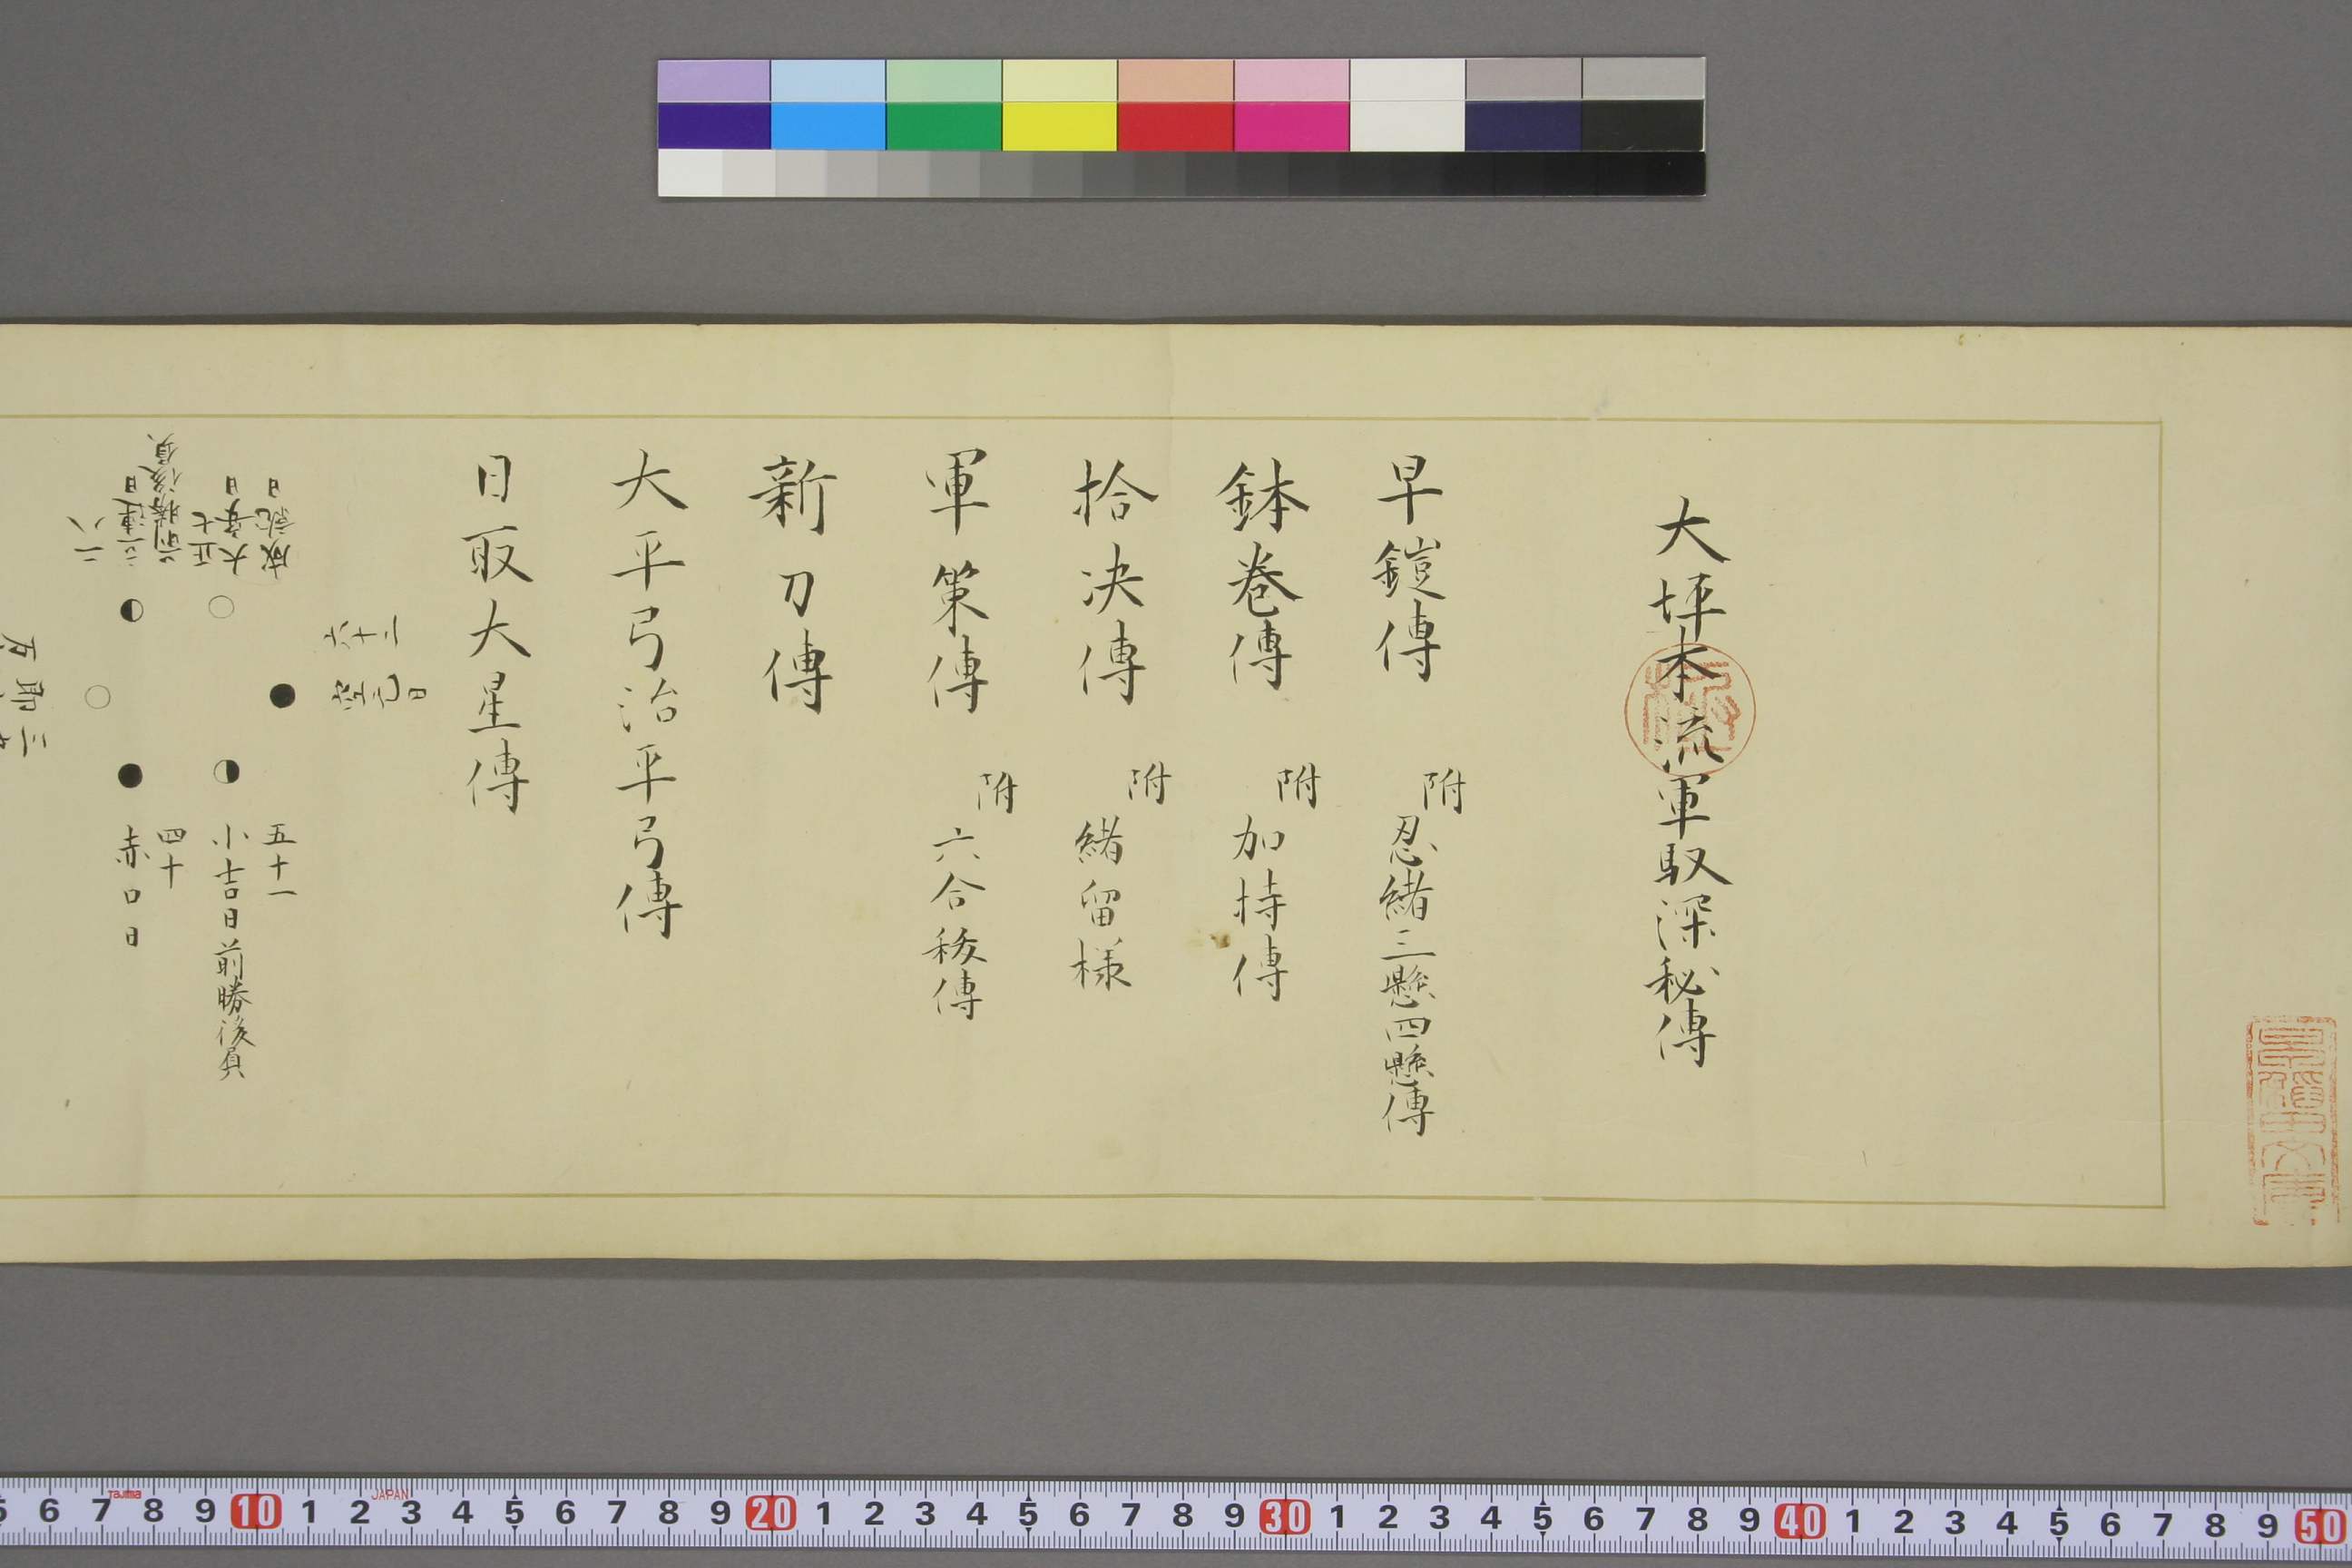 大坪本流軍馭深秘傳
早鎧傳
附
忍緒三懸四懸傳
鉢巻傳
附
加持傳
拾决傳
附
緒留様
軍策傳
附
六合秘傳
新刀傳
大平弓治平弓傳
日取大星傳
六十二
空亡日
成就日
五十一
大安日
正七
小吉日前勝後負
前勝後負
四十
立連日
二八
赤口日
5 6 7 8 9 10 1 2 3 4 5 6 7 8 9 20 1 2 3 4 5 6 7 8 9 30 1 2 3 4 5 6 7 8 9 40 1 2 3 4 5 6 7 8 9 50
Tajima
JAPAN